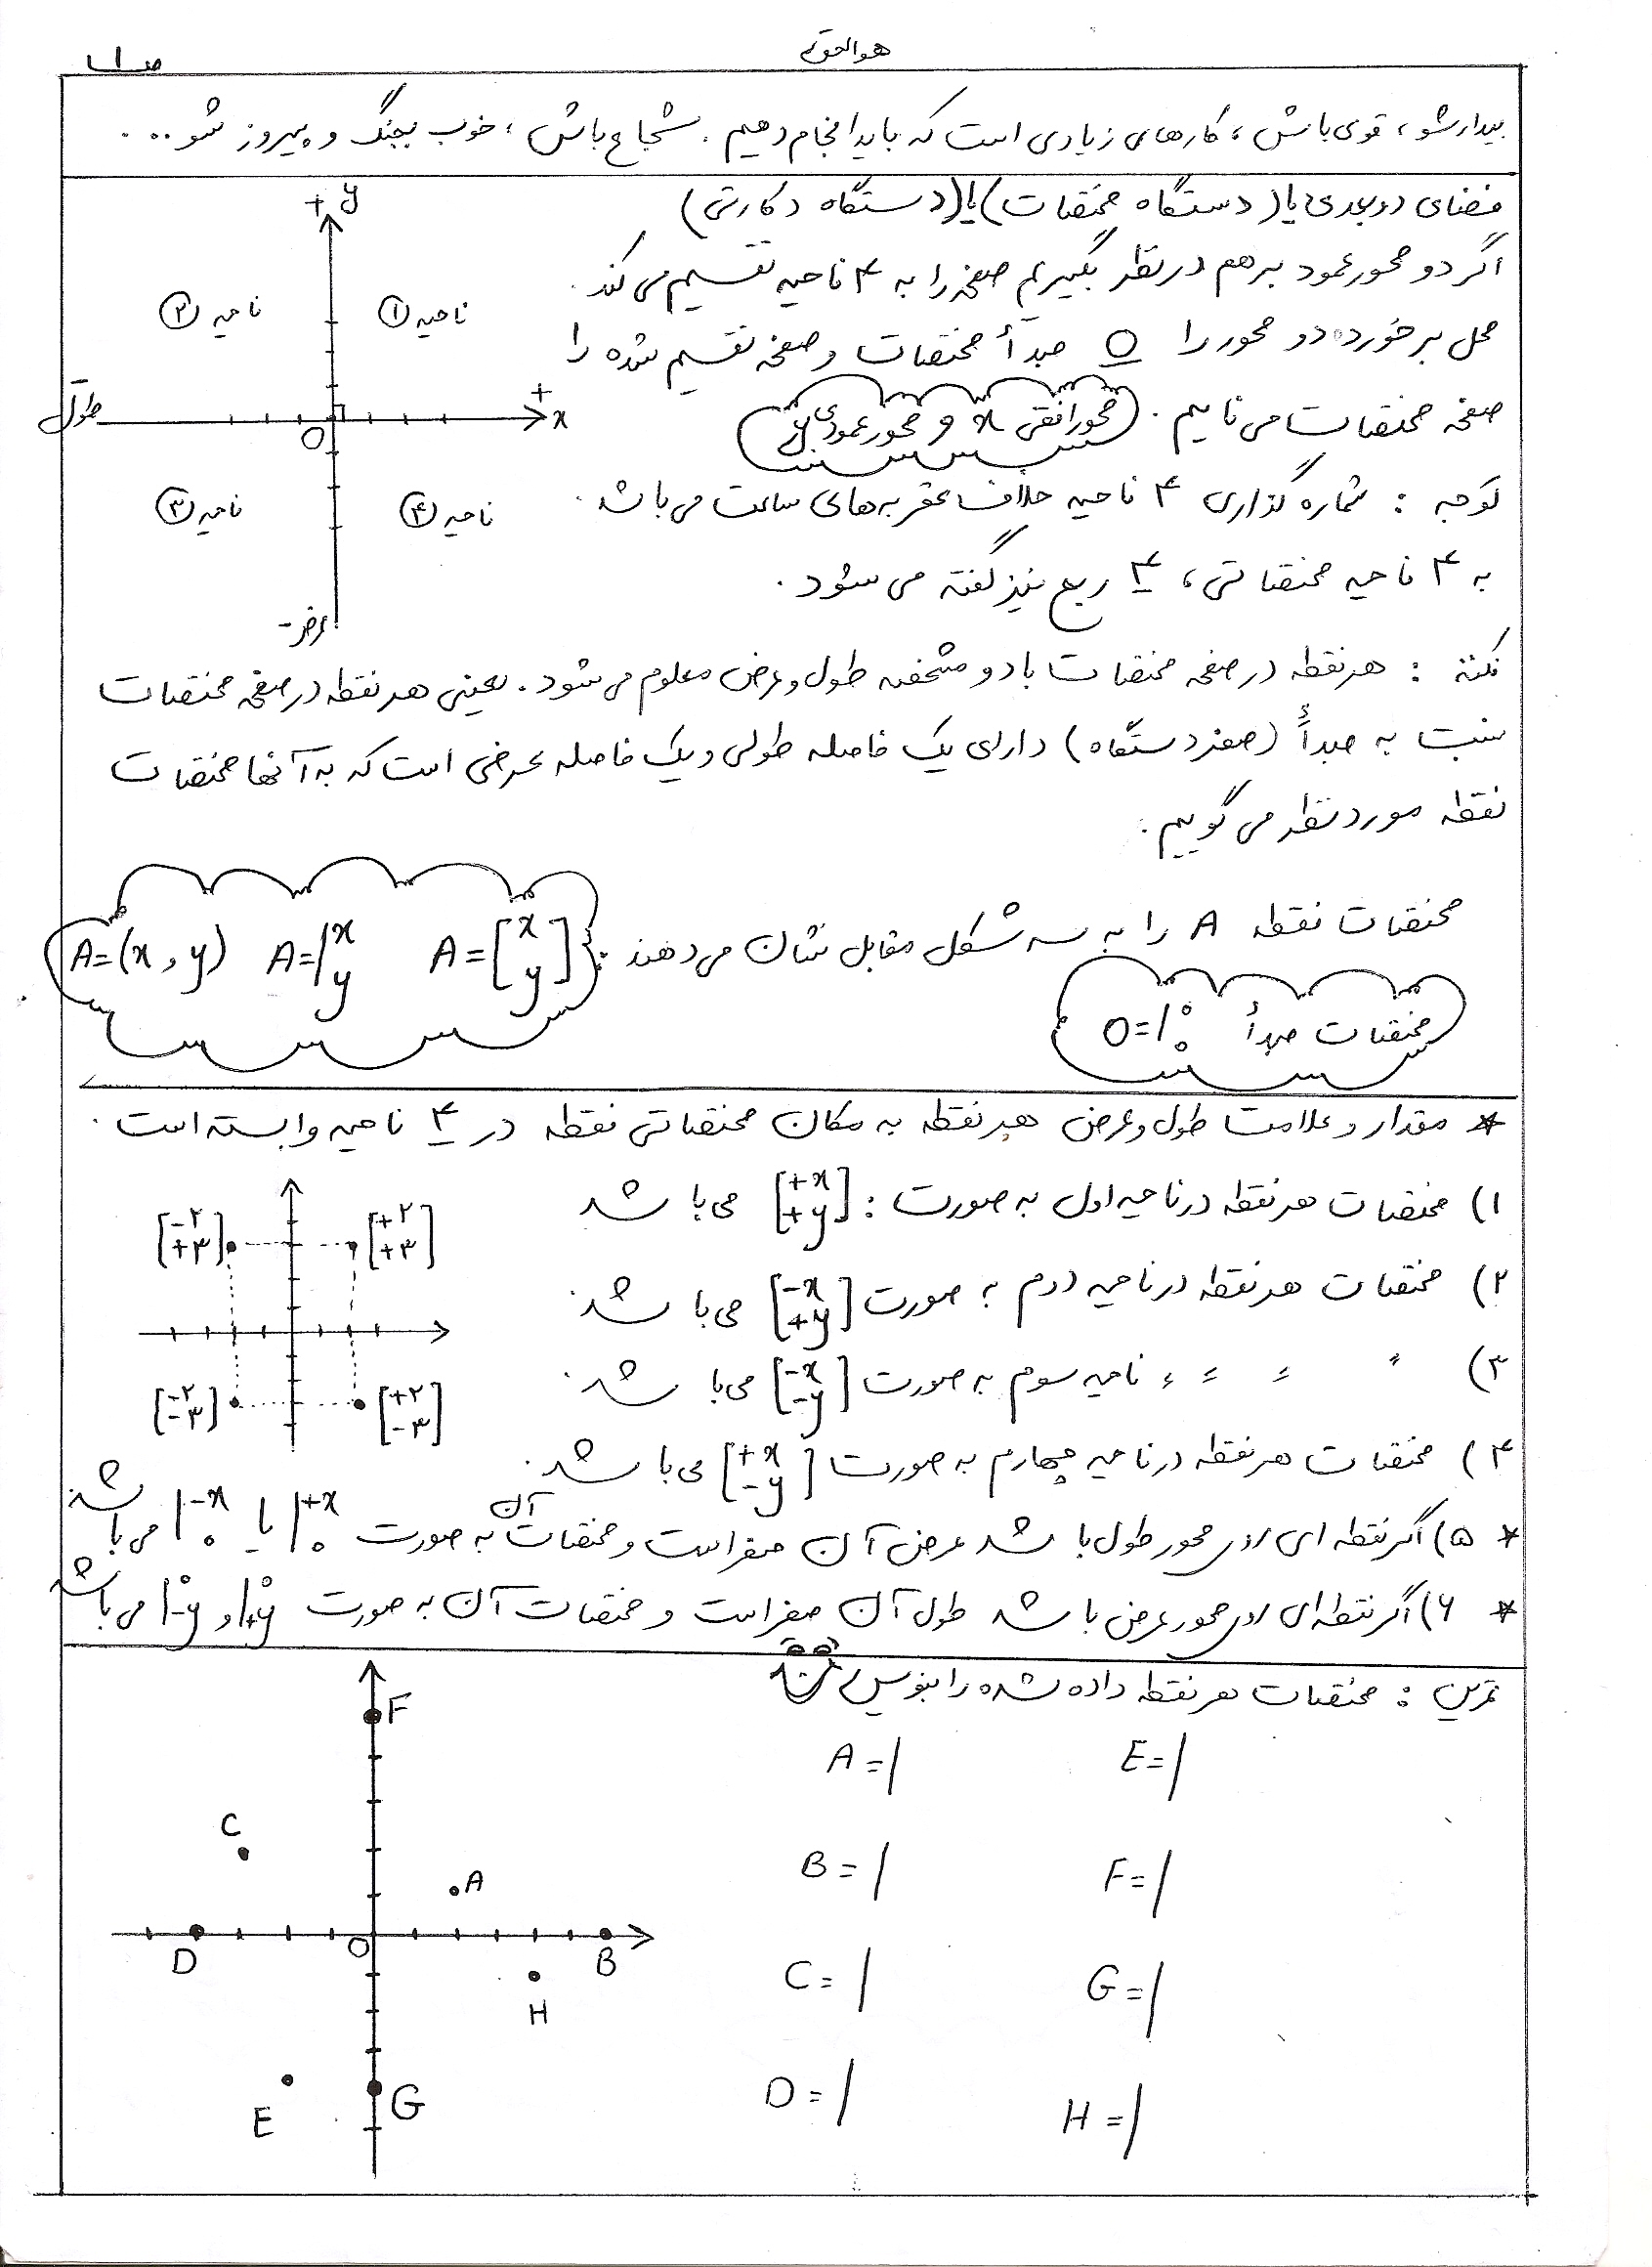 هوالحق
ص ۱
بیدار شو، قوی باش، کارهای زیادی است که باید انجام دهیم. شجاع باش، خوب بجنگ و پیروز شو...
فضای دوبعدی یا (دستگاه مختصات) یا (دستگاه دکارتی)
اگر دو محور عمود بر هم در نظر بگیریم صفحه را به ۴ ناحیه تقسیم می کند.
محل برخورد دو محور را O مبدأ مختصات و صفحه تقسیم شده را
صفحه مختصات می نامیم. (محور افقی x و محور عمودی y)
توجه : شماره گذاری ۴ ناحیه خلاف عقربه های ساعت می باشد.
به ۴ ناحیه مختصاتی، ۴ ربع نیز گفته می شود.
+ y
ناحیه ۲ ناحیه ۱
- طول + x
O
ناحیه ۳ ناحیه ۴
عرض -
نکته : هر نقطه در صفحه مختصات با دو مشخصه طول و عرض معلوم می شود. یعنی هر نقطه در صفحه مختصات
نسبت به مبدأ (صفر دستگاه) دارای یک فاصله طولی و یک فاصله عرضی است که به آنها مختصات
نقطه مورد نظر می گوییم.
مختصات نقطه A را به سه شکل مقابل نشان می دهند : A=[x y] A=|x y A=(x,y)
مختصات مبدأ O=|۰ ۰
* مقدار و علامت طول و عرض هر نقطه به مکان مختصاتی نقطه در ۴ ناحیه وابسته است.
۱) مختصات هر نقطه در ناحیه اول به صورت : [+x +y] می باشد
۲) مختصات هر نقطه در ناحیه دوم به صورت [-x +y] می باشد.
۳) " " " " ناحیه سوم به صورت [-x -y] می باشد.
۴) مختصات هر نقطه در ناحیه چهارم به صورت [+x -y] می باشد.
[-۲ +۳] [+۲ +۳]
[-۲ -۳] [+۲ -۳]
* ۵) اگر نقطه ای روی محور طول باشد عرض آن صفر است و مختصات آن به صورت |+x ۰ یا |-x ۰ می باشد
* ۶) اگر نقطه ای روی محور عرض باشد طول آن صفر است و مختصات آن به صورت |۰ +y و |۰ -y می باشد
تمرین : مختصات هر نقطه داده شده را بنویس
A=| E=|
B=| F=|
C=| G=|
D=| H=|
F
C
A
D O B
H
E G